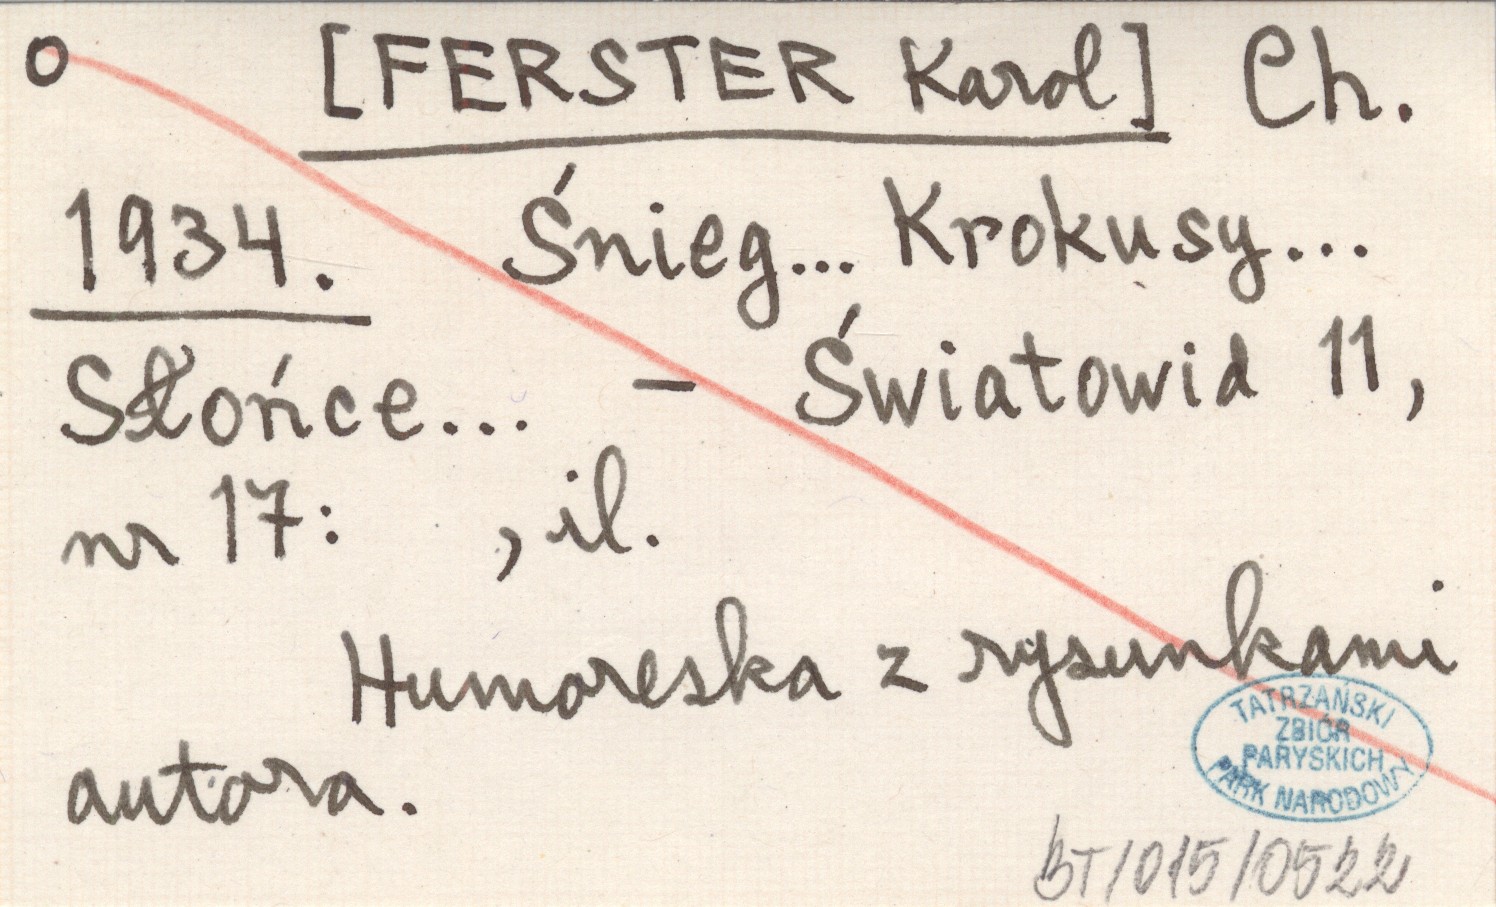 o [FERSTER Karol] Ch.
1934. Śnieg... Krokusy...
Słońce... - Światowid 11,
nr 17: , il.
Humoreska z rysunkami
autora.
TATRZAŃSKI
ZBIÓR
PARYSKICH
PARK NARODOWY
BT/015/0522